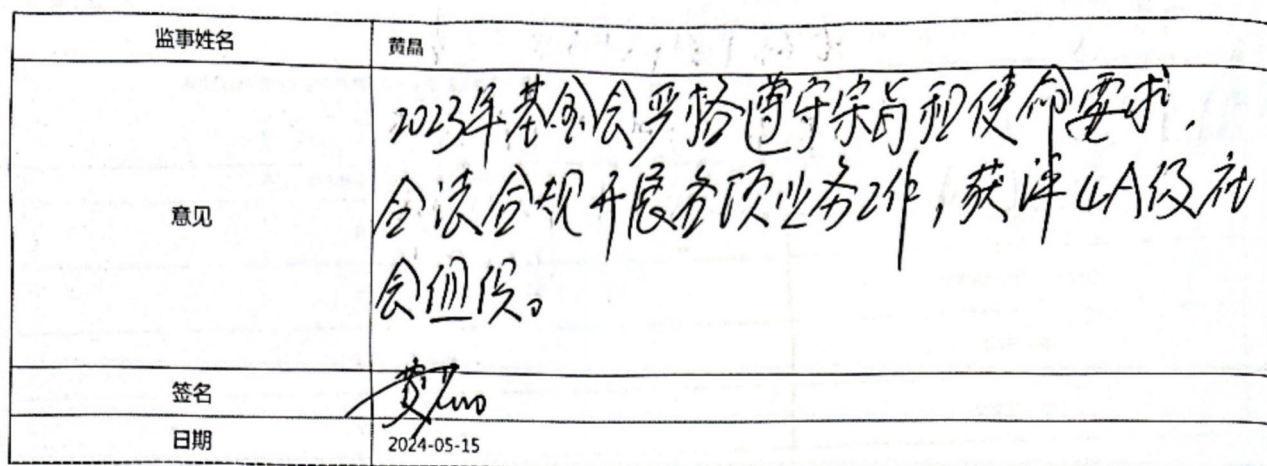 监事姓名 黄晶
2023年基金会严格遵守宗旨和使命要求,
合法合规开展各项业务工作,获评4A级社
意见
会组织。
签名 黄晶
日期 2024-05-15